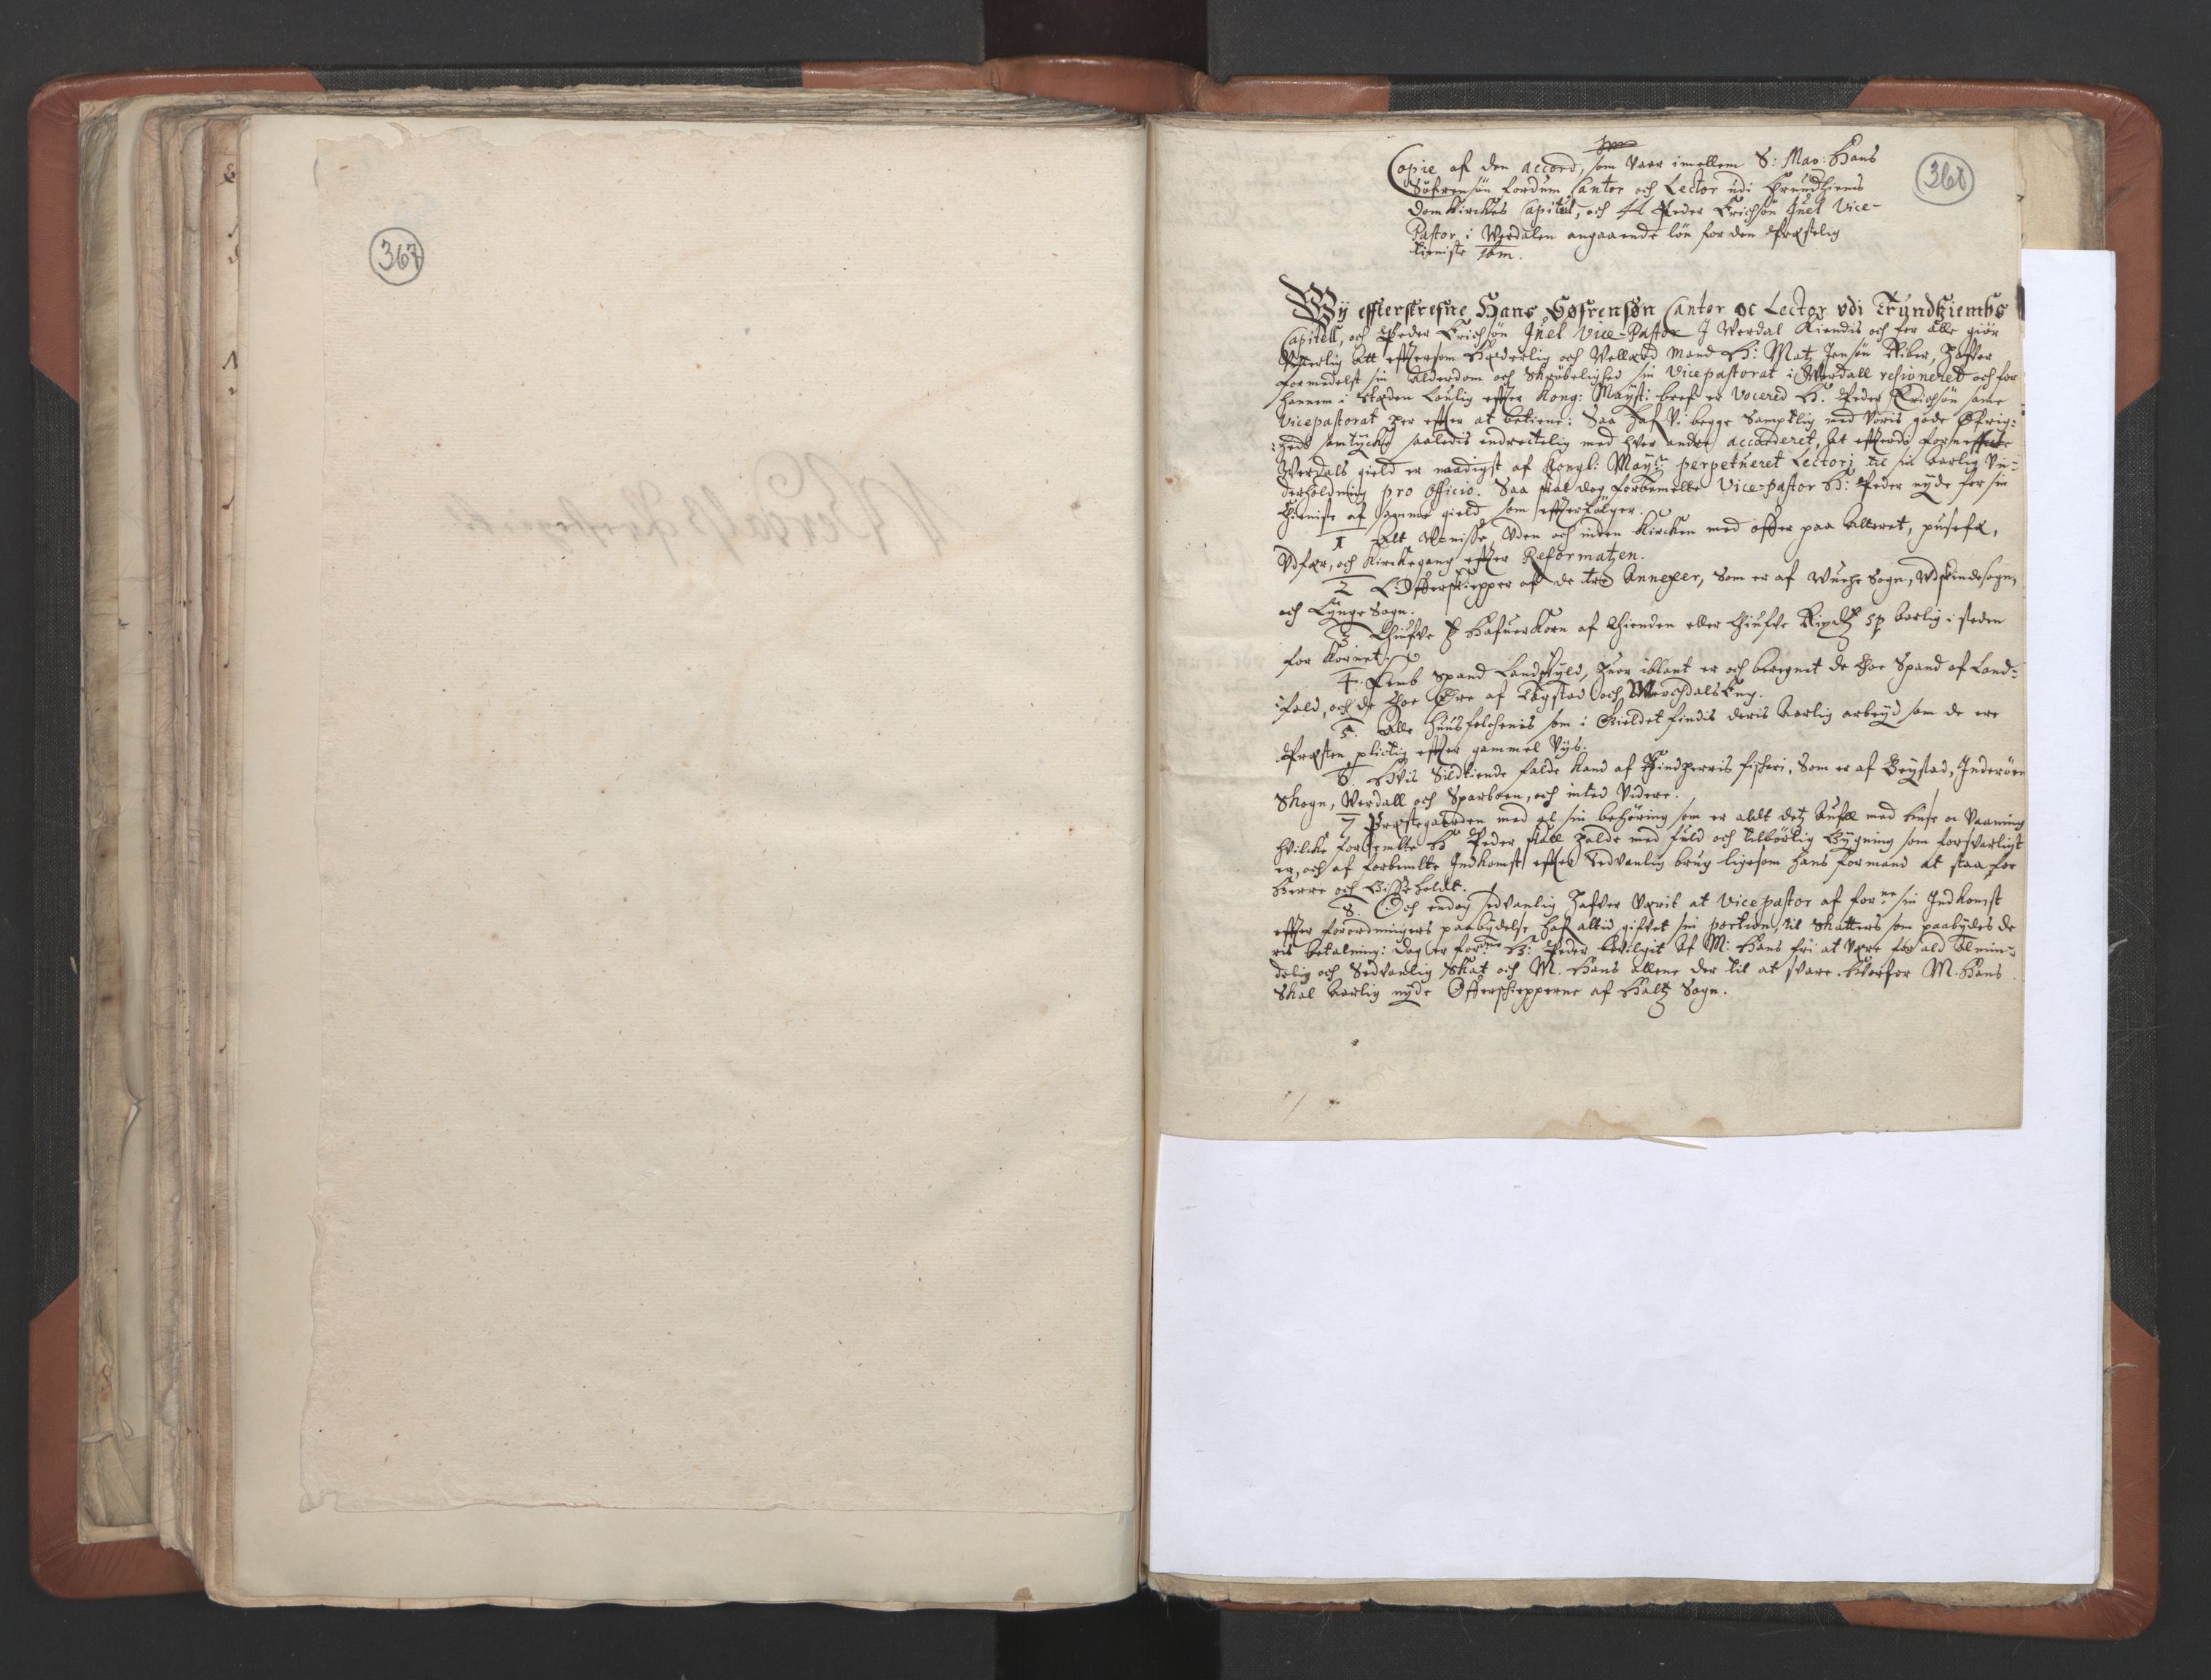 367
368
Copie af den accord, som vaar imellem S: Mag: Hans
Søfrensøn fordum Cantor och Lector udi Trundhiems
Domkirckes Capitel, och H Peder Erichsøn Juel Vice-
Pastor i Werdalen angaaende løn for den Præstelig
tieniste
Wÿ effterskrefne Hans Søfrensøn Cantor oc Lector vdi Trundhiembs
Capitell, och Peder Erichsøn Juel Vice-Pastor J Werdal Kiendis och for alle giør
Vitterlig att effttersom Hæderlig och Vellærd Mand H: Matz Jensøn Riber, haffver
formedelst sin Alderdom och Skrøbelighed sin Vicepastorat i Werdall resioneret och for
hannem i steden loulig efter Kong: Mayst: bref er Vocered H. Peder Erichsøn same
Vicepastorat her efter at betiene: Saa haf Vi begge Samptlig med Voris gode Øfrig-
heds samtÿcke saaledis endrectelig med hver andre accorderet, At efterdi
Werdals gield er naadigst af Kongl: Mayst: perpetueret Lectori til sin Aarlig Vn-
derholdning pro Officio. Saa skal dog forbemelte Vice-pastor H: Peder nÿde for sin
Thieniste af samme gield som effterfølger.
1 Alt Vden och inden Kircken med offer paa Alteret,
och Kirckegang efter Reformatzen.
2 Offerskiepper af de tre Annexer, Som er af Wuche Sogn,
och Lÿnge Sogn.
3 Thiufve Hafuerkorn af Thienden eller Thiufve Rixdlr sp Aarlig i steden
for Kornet.
4. Femb Spand Landskyld, huor iblant er och beregnet de thoe Spand af Land-
fald, och de thoe Øre af och Werchdals Eng.
5. Alle Huusfolchenis som i Gieldet findis deris Aarlig arbeÿd som de ere
Præsten plictig efter gammel Vÿs.
6 Hvis Sildtiende falde kand af fischeri, Som er af Beÿstad, Inderøen
Skogn, Werdall och Sparboen, och inted Videre.
7 Præstegaarden med al sin behøring som er aldt detz Aufll med huse oc Vaaning
Hvilcke forbemelte H Peder skall holde med fuld och tilbørlig Bÿgning som forsvarligt
er, och af forbemelte Indkomst efter Sedvanlig brug ligesom hans formand at staa for
Herre och
8. Och endog sedvanlig hafver Verit at Vicepastor af forne sin Indkomst
efter forordningers paabÿdelse haf altid gifvet sin portion, til skatters som paabÿdes de
ris betalning: dog er forne H: Peder bevilgit af M: Hans fri at Være for ald Almin-
delig och Sedvanlig Skat och M. Hans allene der til at svare. Hvorfor M. Hans
Skal Aarlig nÿde Offerschiepperne af Haltz Sogn.